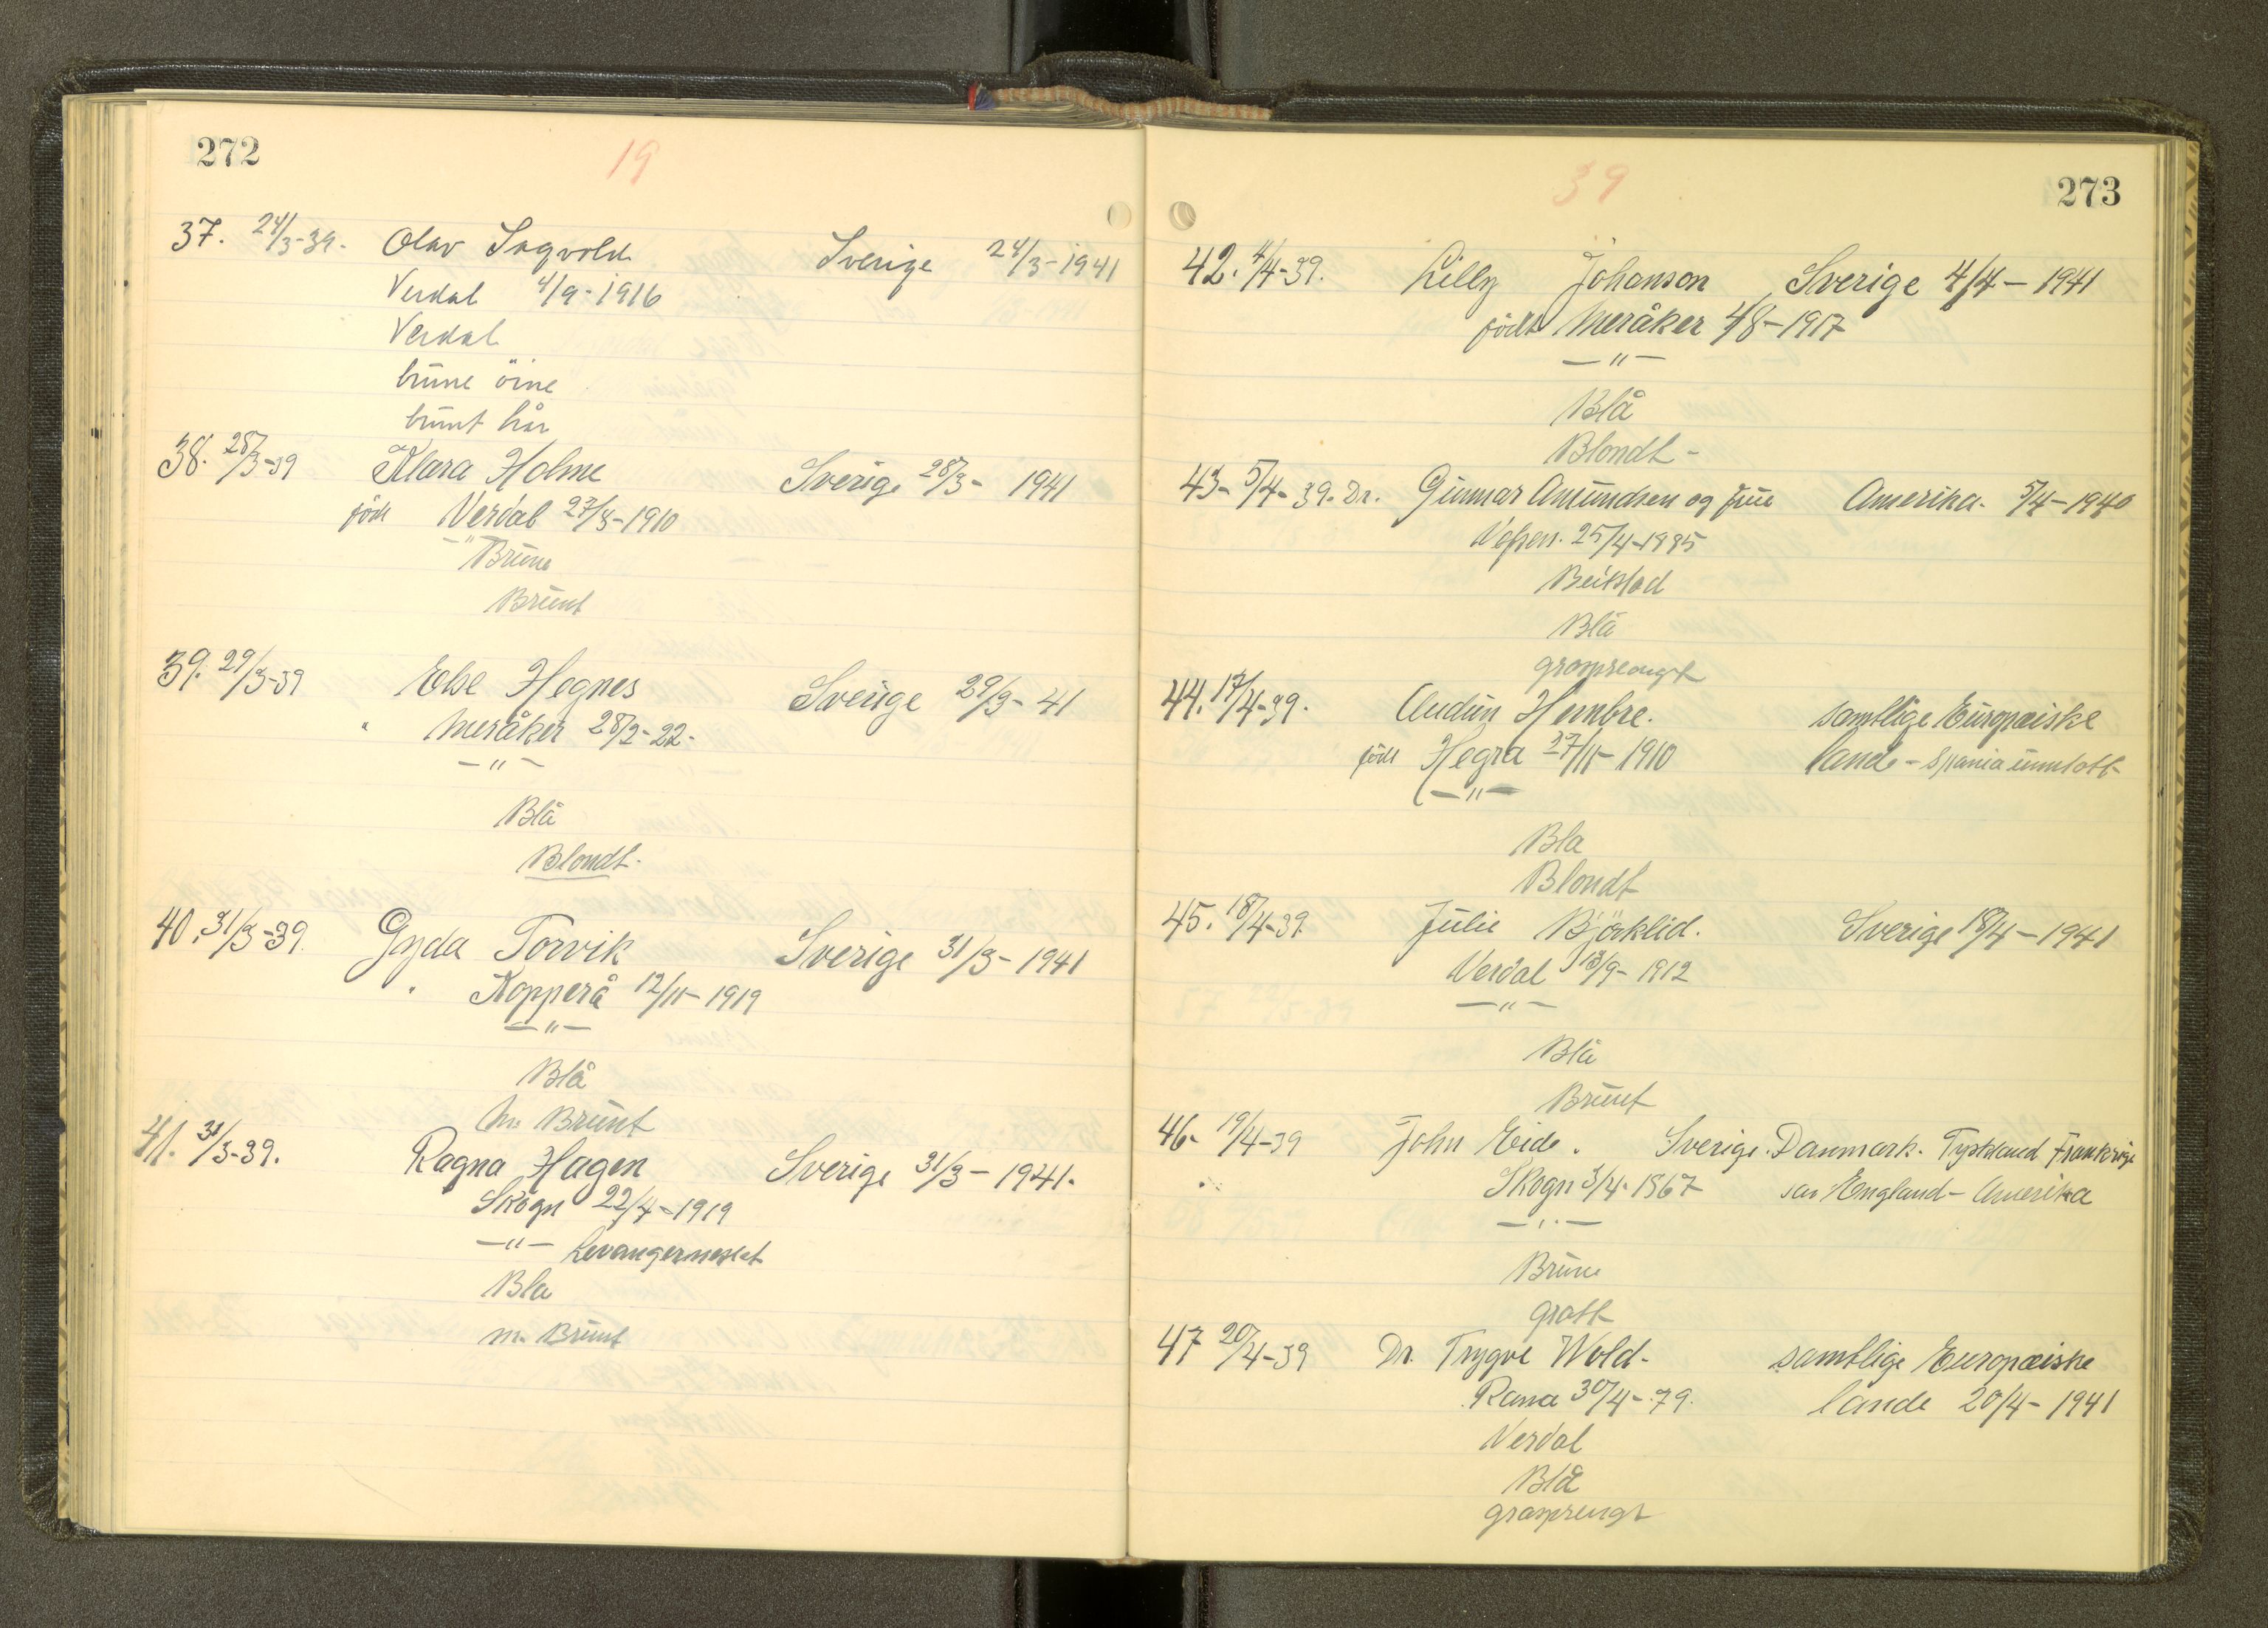 272
19
37. 24/3-39. Olav Sagvold Sverige 24/3-1941
Verdal 4/9-1916
Verdal
brune öine
brunt hår
38. 28/3-39 Klara Holme Sverige 28/3- 1941
föd Verdal 27/8-1910
-"- Brune
Brunt
39. 29/3-39 Else Hegnes Sverige 29/3- 41
" Meråker 28/2-22-
-"-
Blå
Blondt.
40. 31/3-39. Gyda Torvik Sverige 31/3- 1941
" Kopperå 12/11-1919
-"-
Blå
m. Brunt
41. 31/3-39. Ragna Hagen Sverige 31/3-1941.
Skogn 22/4-1919
-"- Levangernesset
Bla
m. Brunt
39
273
42. 4/4-39. Lilly Johanson Sverige 4/4-1941
født Meråker 4/8-1917
-"-
Blå
Blondt-
43- 5/4-39. Dr. Gunnar Amundsen og frue Amerika. 5/4-1940
Vefsen. 25/4-1885
Beitstad
Blå
gråsprengt
44. 17/4-39. Audun Hembre. samtlige Europæiske
född Hegra 27/11-1910 lande - Spania unntatt
-"-
Bla
Blondt
45. 18/4-39. Julie Bjørklid. Sverige 18/4-1941
Verdal 13/9-1912
-"-
Blå
Brunt
46- 19/4-39 John Eide. Sverige. Danmark. Tyskland Frankrige
Skogn 3/4-1867 England- Amerika
-"-
Brune
gratt
47 20/4-39 Dr. Trygve Wold- samtlige Europæiske
Rana 30/4-79. lande 20/4-1941
Verdal
Blå
grasprengt